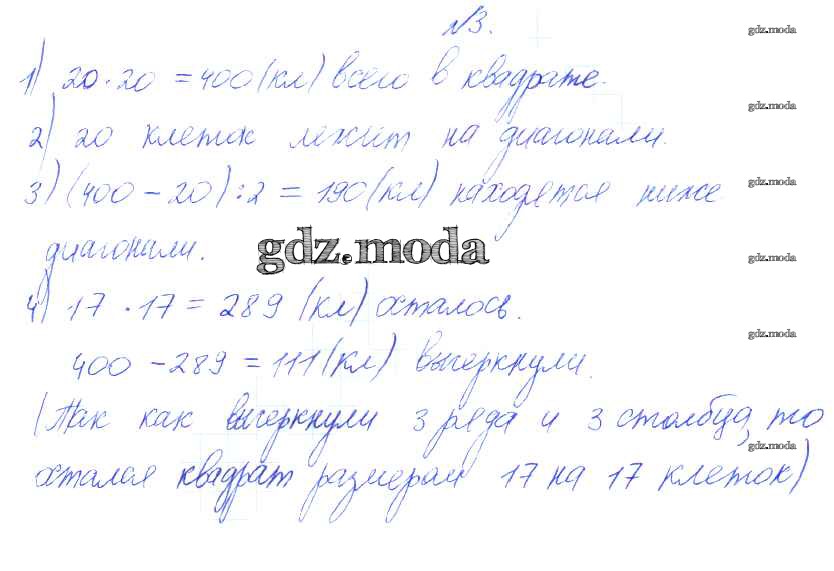 №3.
gdz.moda
1) 20·20 = 400 (кл) всего в квадрате.
gdz.moda
2) 20 клеток лежит на диагонали.
3) (400 - 20) : 2 = 190 (кл) находятся ниже
gdz.moda
диагонали.
gdz.moda
gdz.moda
4) 17 · 17 = 289 (кл) осталось.
gdz.moda
400 - 289 = 111 (кл) вычеркнули.
(Так как вычеркнули 3 ряда и 3 столбца, то
gdz.moda
остался квадрат размерам 17 на 17 клеток)